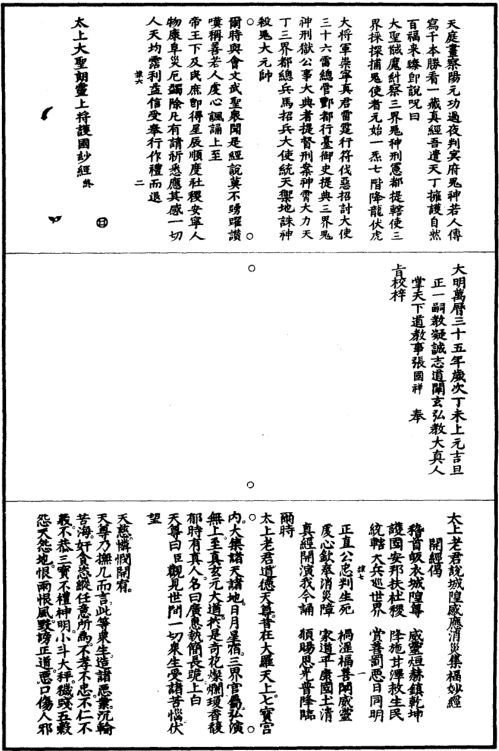 天庭晝察陽元功過夜判冥府鬼神若人傳
寫千本勝看一藏真經吾遣天丁擁護自然
百福來臻即說呪曰
大聖誠魔糾察三界鬼神刑憲都提轄使三
界採探捕鬼使者元始一炁七階降龍伏虎
大將軍崇寧真君雷霆行符伐惡招討大使
三十六雷總管酆都行臺御史提典三界鬼
神刑獄公事大典者提督刑案神霄大力天
丁三界都總兵馬招兵大使統天禦地誅神
殺鬼大元帥
爾時與會文武聖衆聞是經說莫不踴躍讚
嘆稱善若人虔心諷誦上至
帝王下及民庶即得星辰順度社稷安寧人
物康阜災厄蠲除凡有請祈悉應其感一切
人天均霑利益信受奉行作禮而退
二
太上大聖朗靈上將護國妙經終
大明萬曆三十五年歲次丁未上元吉旦
正一嗣教凝誠志道闡玄弘教大真人
掌天下道教事張國祥 奉
旨校梓
太上老君說城隍感應消災集福妙經
開經偈
稽首皈衣城隍尊 威靈烜赫鎮乾坤
護國安邦扶社稷 降施甘澤救生民
統轄大兵巡世界 賞善罰惡日同明
正直公忠判生死 禍淫福善闡威靈
虔心欽奉消災障 家道平康國土清
真經開演我今誦 願賜恩光普降臨
爾時
太上老君道德天尊昔在大羅天上七寶宮
內大集諸天諸地日月星宿三界官屬弘演
無上至真玄元大道於是奇花燦爛瓊香馥
郁時有真人名曰廣惠執簡長跪上白
天尊曰臣觀見世間一切衆生受諸苦惱伏
望
天慈憐憫開宥
天尊乃撫几而言此等衆生造諸惡業沉輪
苦海奸貪恣縱任意所為不孝不忠不仁不
義不恭三寶不禮神明小斗大秤穢踐五穀
怨天怨地恨雨恨風毀謗正道惡口傷人邪